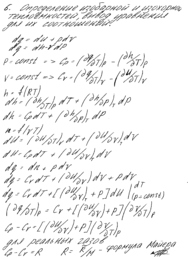 6. Определения изобарной и изохорной
теплоемкостей, вывод уравнения
для их соотношений.
dq = du + pdv
dq = dh - vdP
p = const => Cp = (∂q/∂T)p = (∂h/∂T)p
v = const => Cv = (∂q/∂T)v = (∂u/∂T)v
h = f(P,T)
dh = (∂h/∂T)p dT + (∂h/∂P)T dP
dh = Cp dT + (∂h/∂P)T dP
u = f(v,T)
dU = (∂U/∂T)v dT + (∂U/∂v)T dv
dU = Cv dT + (∂u/∂v)T dv
dq = du + pdv
dq = Cv dT + (∂U/∂v)T dv + p dv
dq = Cv dT + [(∂U/∂v)T + p] dU | dT (p = const)
(∂q/∂T)p = Cv + [(∂U/∂v)T + p] (∂v/∂T)p
Cp - Cv = [(∂U/∂v)T + p] (∂v/∂T)p
для реальных газов
Cp - Cv = R R = R/M - формула Майера